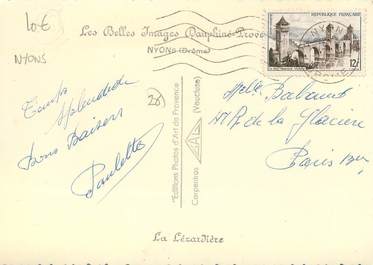 10€
NYONS
Les Belles Images Dauphiné-Prove
NYONS (Drôme)
RÉPUBLIQUE FRANÇAISE
12F
NYONS
Temps splendide
Bons Baisers
Paulette
26
"Editions Photos d'Art de Provence"
Carpentras (Vaucluse)
Melle
R. de la Glacière
Paris
La Lézardière